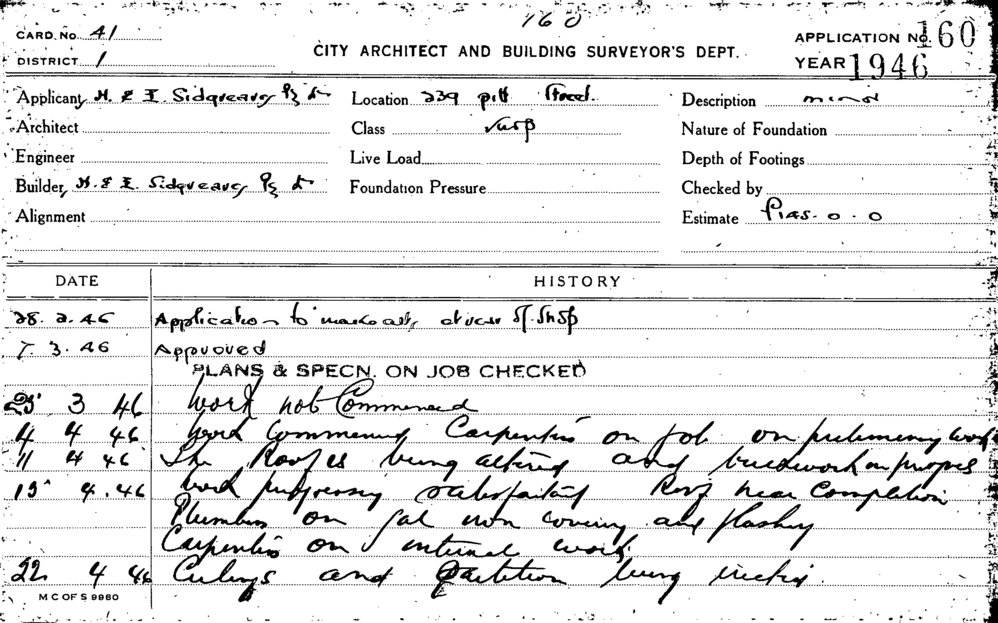 160
CARD. No. 41
APPLICATION No. 160
CITY ARCHITECT AND BUILDING SURVEYOR'S DEPT.
DISTRICT 1
YEAR 1946
Applicant H. & E. Sidgreaves Pty Ltd Location 239 pitt Street. Description minor
Architect Class Shop Nature of Foundation
Engineer Live Load Depth of Footings
Builder H. & E. Sidgreaves Pty Ltd Foundation Pressure Checked by
Alignment Estimate £125. 0. 0
DATE HISTORY
28. 2. 46 Application to make alts, at rear of Shop
7. 3. 46 Approved
PLANS & SPECN. ON JOB CHECKED
25 3 46 Work not Commenced
4 4 46 Work Commenced Carpenters on job on preliminary work
11 4 46 The Roof is being altered and brickwork in progress
15 4. 46 Work progressing satisfactory Roof near Completion
Plumbers on gal iron covering and flashing
Carpenters on internal work
22 4 46 Ceilings and Partition being erected.
M C OF S 9960